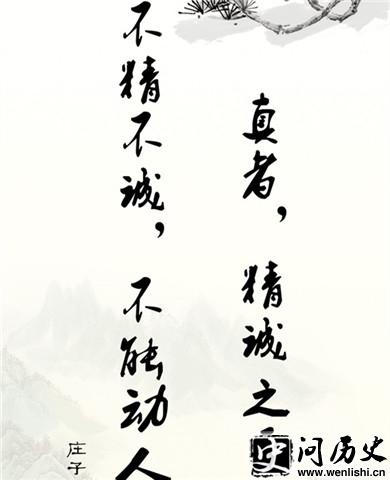 真者，精诚之
不精不诚，不能动人
庄子
史问历史
www.wenlishi.cn